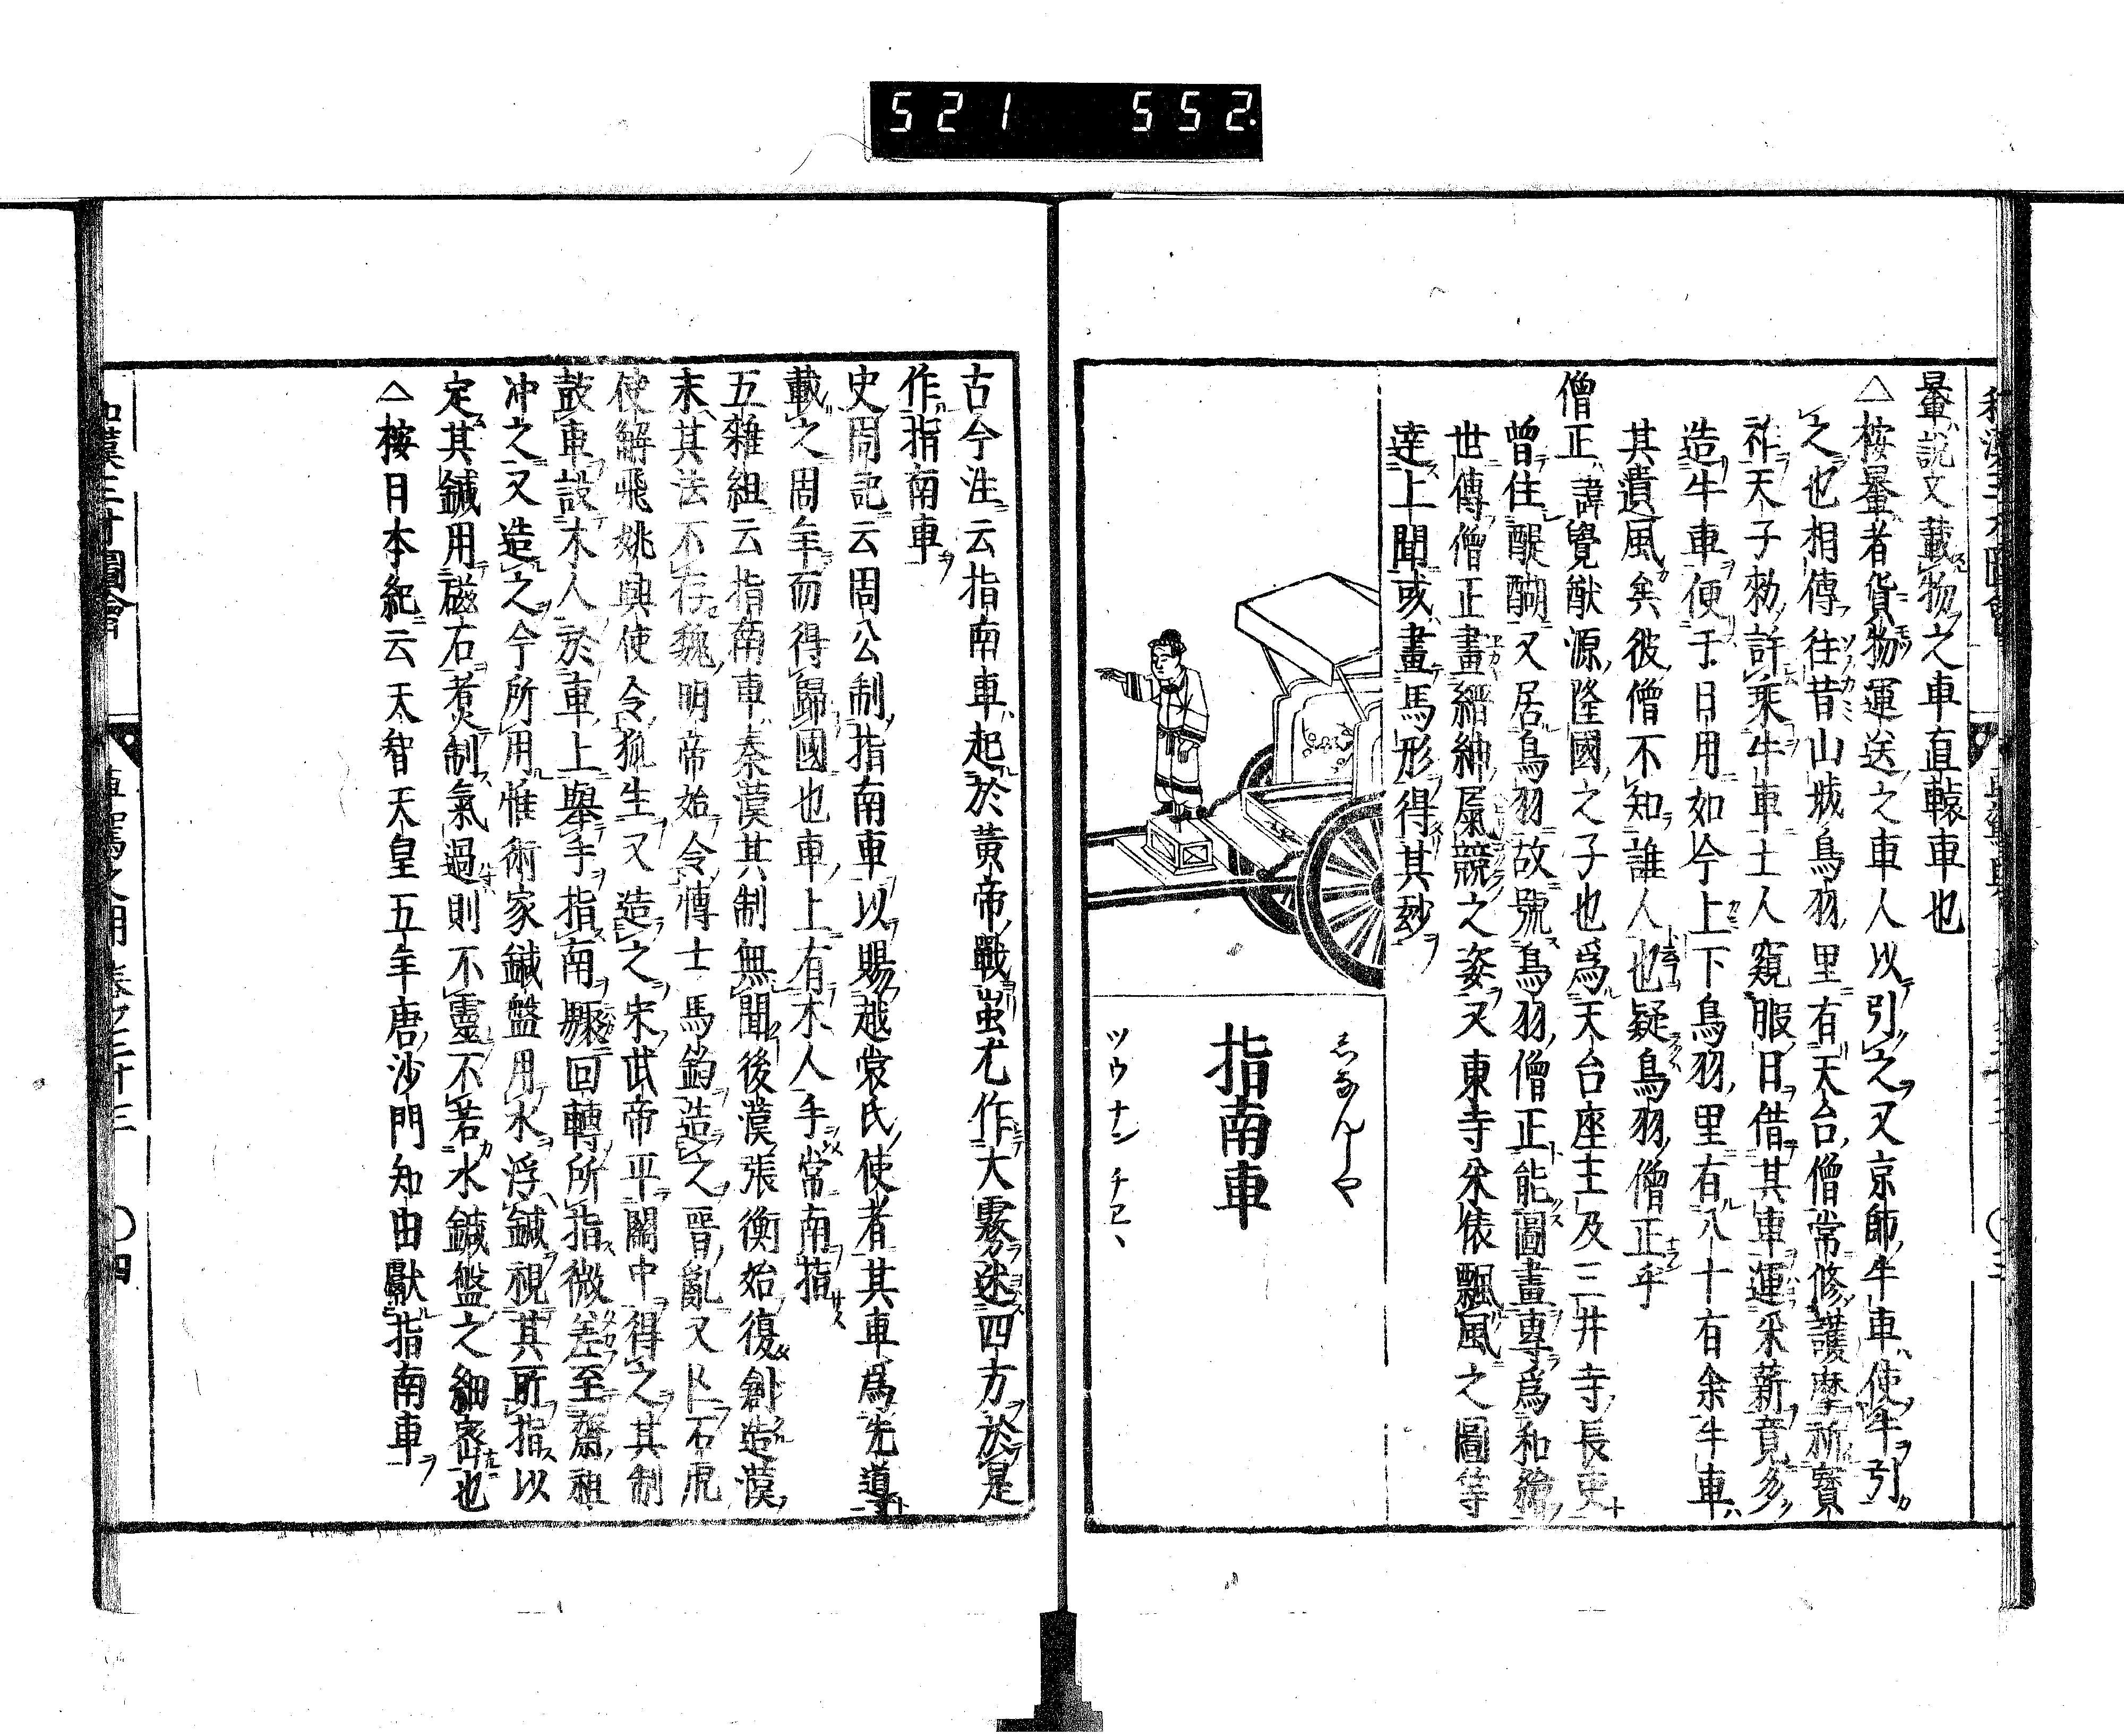 521 552
輂說文載物之車直轅車也
△桉輂者貨物運送之車人以引之又京師牛車使牛引
之也相傳往昔山城鳥羽里有天台僧常修護摩祈寳
祚天子勅許乘牛車土人窺暇日借其車運釆薪竟多
造牛車便于日用如今上下鳥羽里有八十有余牛車
其遺風矣彼僧不知誰人也疑鳥羽僧正乎
僧正諱覺猷源隆國之子也爲天台座主及三井寺長吏
曾住醍醐又居鳥羽故號鳥羽僧正能圖畫專爲和繪
世傳僧正畫縉紳屎競之姿又東寺米俵飄風之圖等
達上聞或畫馬形得其玅
指南車
しなんしや
ツウナンチエヽ
古今注云指南車起於黃帝戰蚩尤作大霧迷四方於是
作指南車
史周記云周公制指南車以賜越裳氏使者其車爲先導
載之周年而得歸國也車上有木人手常南指
五雜組云指南車秦漢其制無聞後漢張衡始復創造漢
末其法不存魏明帝始令博士馬鈞造之晉亂又亡石虎
使解飛姚興使令狐生又造之宋武帝平關中得之其制
鼓車設木人於車上舉手指南驟回轉所指微差至齋祖
冲之又造之今所用惟術家鍼盤用水浮鍼視其所指以
定其鍼用磁石煮制氣過則不靈不若水鍼盤之細密也
△桉日本紀云天智天皇五年唐沙門知由獻指南車
和漢三才圖會
車駕之用 卷之三十三 〇四